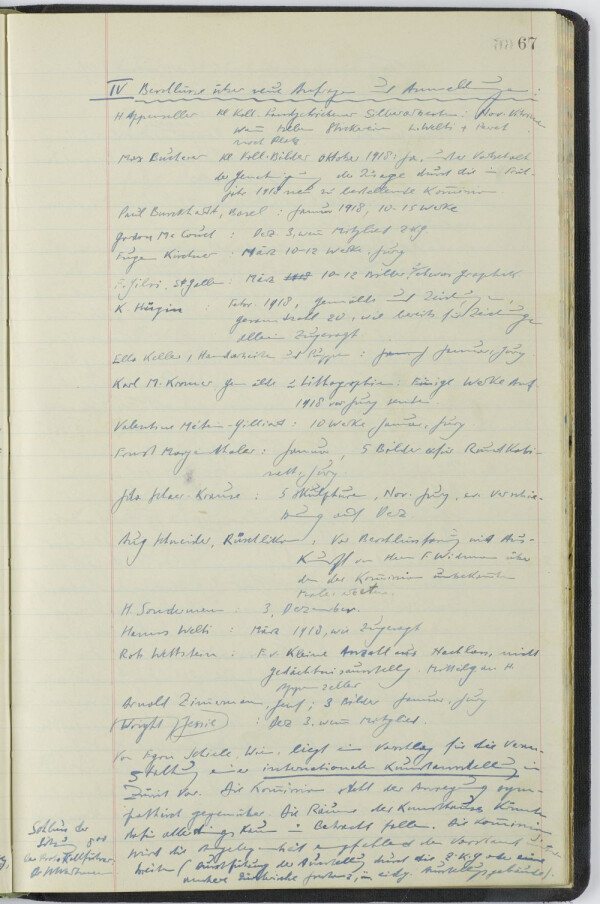 67
IV Beschlüsse über neue Anfragen und Anmeldungen:
H Appenzeller Kl. Koll. Silberarbeiten: Nov.
wenn neben + 
noch Platz
Max Bucherer Kl. Koll. Bilder Oktober 1918: ja, unter Vorbehalt
der Genehmigung der Zusage durch die im Früh-
jahr 1918 neu zu bestellende Kommission
Paul Burckhardt, Basel: Januar 1918, 10-15 Werke
Gordon Mc Couch: Dez. 3, wenn Mitglied ZKG
Eugen Kirchner: März 10-12 Werke, Jury
F. Gilsi, St. Gallen: März 10-12 Bilder
K. Hügin: Febr. 1918, Gemälde und Zeichnungen,
Gesamtzahl 20, wie bereits für Zeichnungen
allein zugesagt
Ella Keller, Handarbeiten und Puppen: Januar, Jury
Karl M. Kromer Gemälde u Lithographien: Einige Werke Anf.
1918 vor Jury
Valentine Métein-Gilliard: 10 Werke, Januar, Jury
Ernst Morgenthaler: Januar, 5 Bilder Kabi-
nett, Jury
Schaer-Krause: 5 Skulpturen, Nov. Jury, ev. Verschie-
bung auf Dez
Aug Schneider, Rüschlikon: Vor Beschlussfassung mit Aus-
kunft von Herrn F. Widmann über
den der Kommission unbekannten
Maler
H. Sondermann: 3, Dezember.
Hanns Welti: März 1918, wie zugesagt
Rob Wettstein: Kleine Anzahl aus Nachlass, nicht
Gedächtnisausstellg. Mitteilg an H.
Appenzeller
Arnold Zimmerman, Genf; 3 Bilder Januar, Jury
(Wright Jessie): Dez 3. wenn Mitglied.
Von Egon Schiele, Wien, liegt ein Vorschlag für die Veran-
staltung einer internationalen Kunstausstellung in
Zürich vor. Die Kommission steht der Anregung sym-
pathisch gegenüber. Die Räume des Kunsthauses können
dafür allerdings kaum in Betracht fallen. Die Kommission
wird die Angelegenheit empfehlend dem Vorstand
(Durchführung der Ausstellung durch die Z.K.G oder eine
andere zürcherische in eidg. Ausstellungsgebäude).
Schluss der
Sitzung
Der Protokollführer